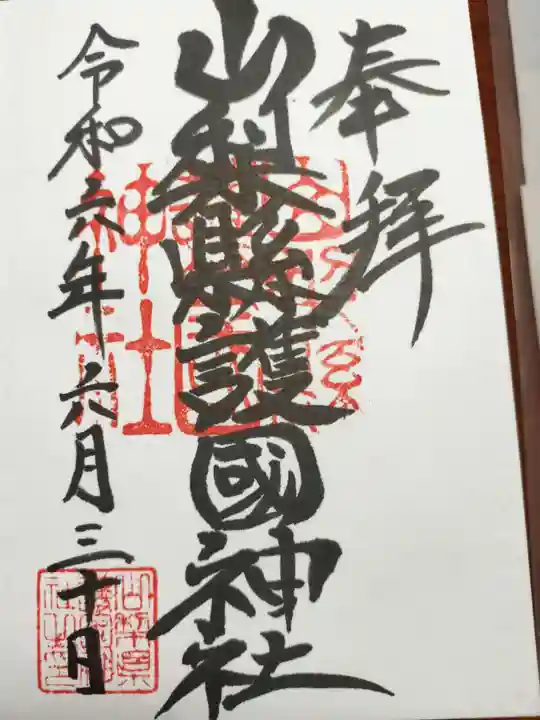 奉拝
山梨縣護國神社
令和六年六月三十日